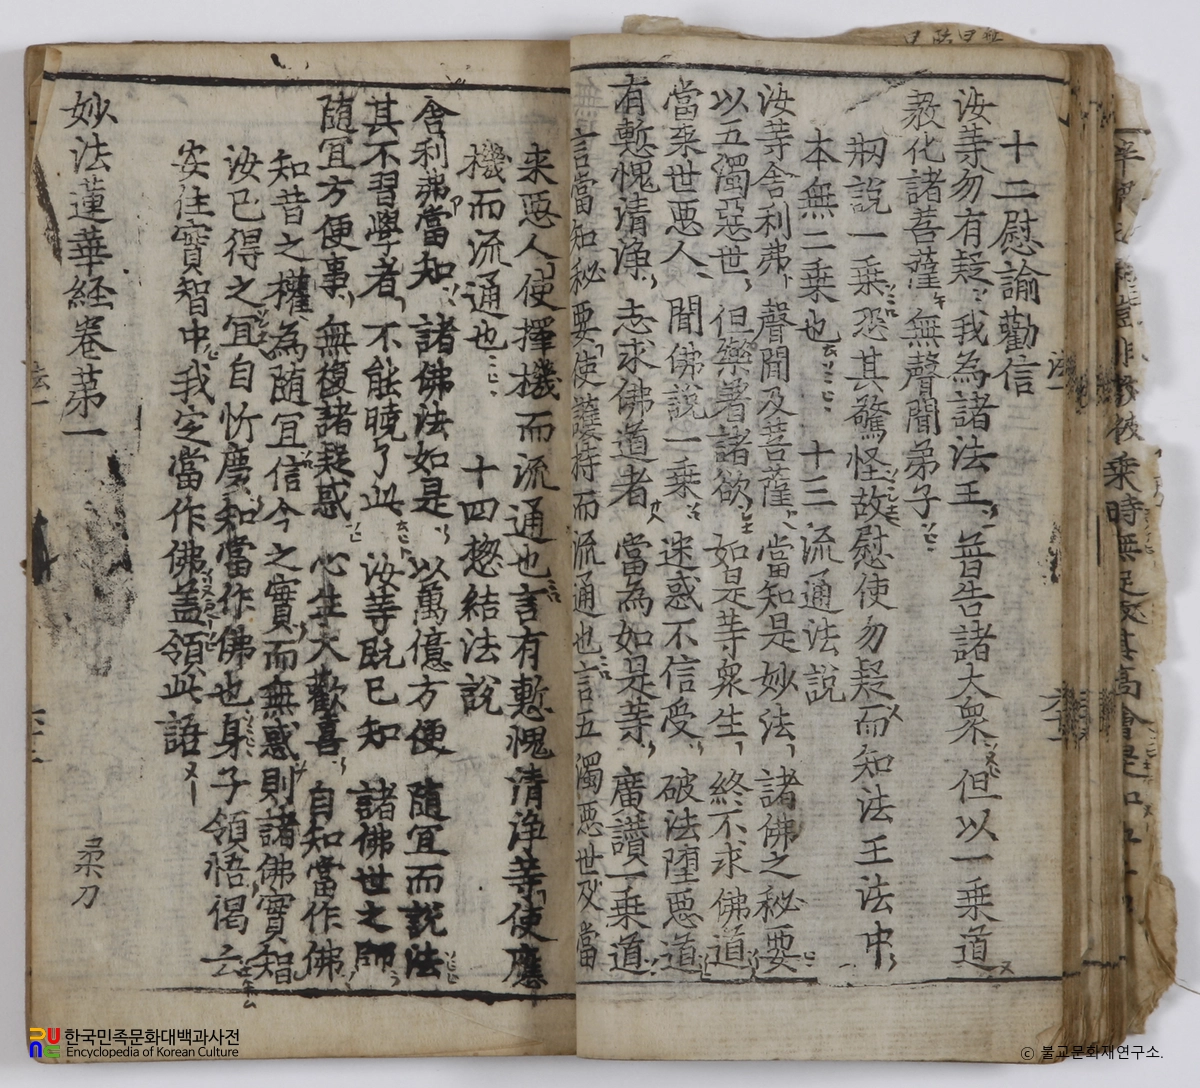 十二慰諭勸信
汝等勿有疑我為諸法王普告諸大衆但以一乗道
教化諸菩薩無聲聞弟子
剏說一乗恐其驚怪故慰使勿疑而知法王法中
本無二乗也 十三流通法說
汝等舍利弗聲聞及菩薩當知是妙法諸佛之秘要
以五濁惡世但樂著諸欲如是等衆生終不求佛道
當来世惡人聞佛說一乗迷惑不信受破法堕惡道
有慙愧清淨志求佛道者當為如是等廣讃一乗道
言當知秘要使護持而流通也言五濁惡世及當
来惡人使擇機而流通也言有慙愧清淨等使應
機而流通也 十四惣結法說
舍利弗當知諸佛法如是以萬億方便随宜而說法
其不習學者不能曉了此汝等旣已知諸佛世之師
随宜方便事無復諸疑惑心生大歡喜自知當作佛
知昔之權為随宜信今之實而無惑則諸佛實智
汝已得之宜自忻慶和當作佛也身子領悟偈云
安住實智中我定當作佛盖領此語
妙法蓮華経卷苐一
柔刀
한국민족문화대백과사전
Encyclopedia of Korean Culture
ⓒ 불교문화재연구소.